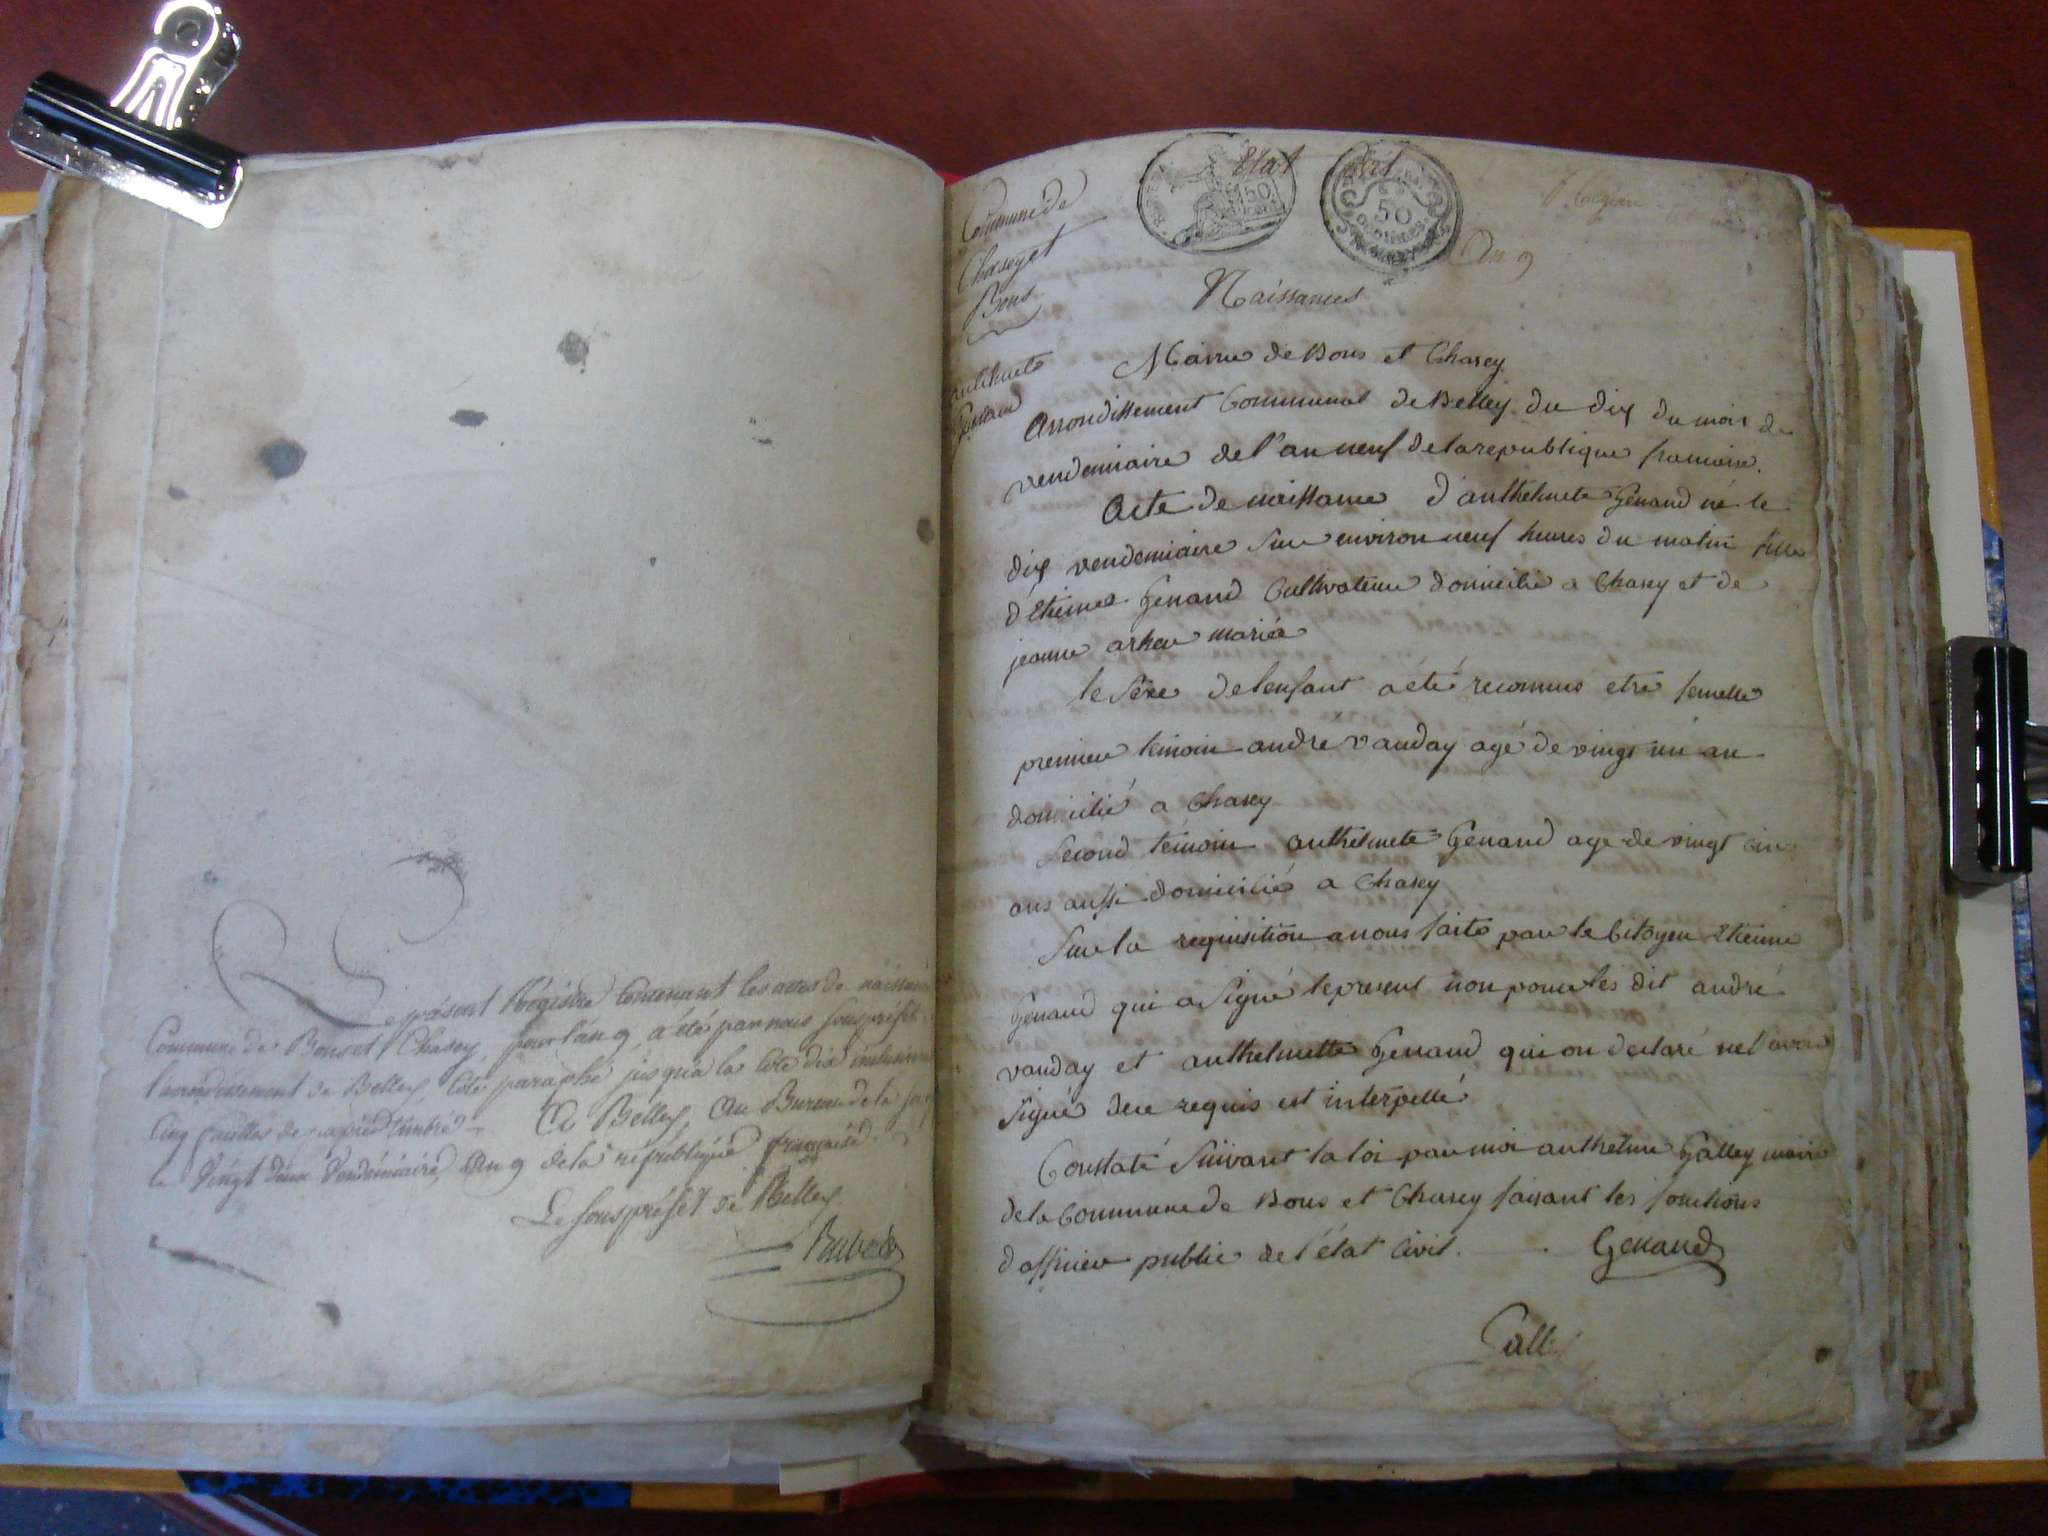 Le présent Régistre Contenant les actes de naissance
Commune de Bons et Chasey, pour l'an 9, a été par nous souspréfet
l'arrondissement de Belley, côté paraphé jusqu'à la côte dix inclusive
Cinq feuilles de papier timbré A Belley, Au Bureau de la sou
le Vingt deux Vendémiaire, an 9 de la république française
Le souspréfet de Belley.
Commune de
Chasey et
Bons
Etat Civil
50
50
CENTIMES
An 9
Naissances
anthelmete
Genand
Mairie de Bons et Chasey
Arrondissement Communal de Belley du dix du mois de
vendemiaire de l'an neuf de la republique francoise.
Acte de naissance d'anthelmete Genand né le
dix vendemiaire sur environ neuf heures du matin fille
d'Etienne Genand Cultivateur domicilié a Chasey et de
jeanne arheu mariée
le sexe de lenfant a été reconnus etre femelle
premier temoin andré vauday agé de vingt un an
domicilié a Chasey
Second témoin anthelmete Genand age de vingt cinq
ans aussi domicilié a Chasey
Sur la requisition a nous faite par le Citoyen Etienne
Genand qui a signé le present non pour les dit andré
vauday et anthelmette Genand qui on declaré ne l'avoir
signé de ce requis est interpellé
Constaté suivant la loi par moi anthelme Galley maire
de la Commune de Bons et Chasey faisant les fonctions
d'officier public de l'état Civil. Genand
Galley